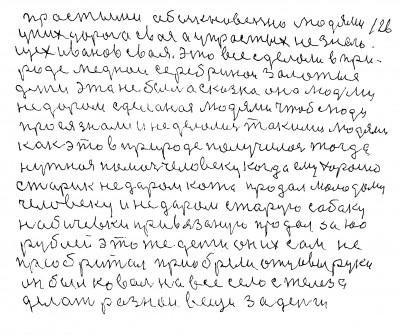 простыми обыкновенно людями 126
у них дорога своя а у простых незнаю
щех иванов своя. Это все сделоли в при-
роде медной серебриной золотыя
дети это не была сказка она людми
недаром сделаная людями чтоб люди
про
как это в природе получился тогда
нужная помоч человеку когда ему хорошо
старик недаром кота продал молодому
человеку и недаром старую собаку
на бичевки привязаную продал за 100
рублей это же дети они их сам не
приобритал приобрели отцовы руки
он был ковал на все село с телеза
делал разнаи вещи за дерги